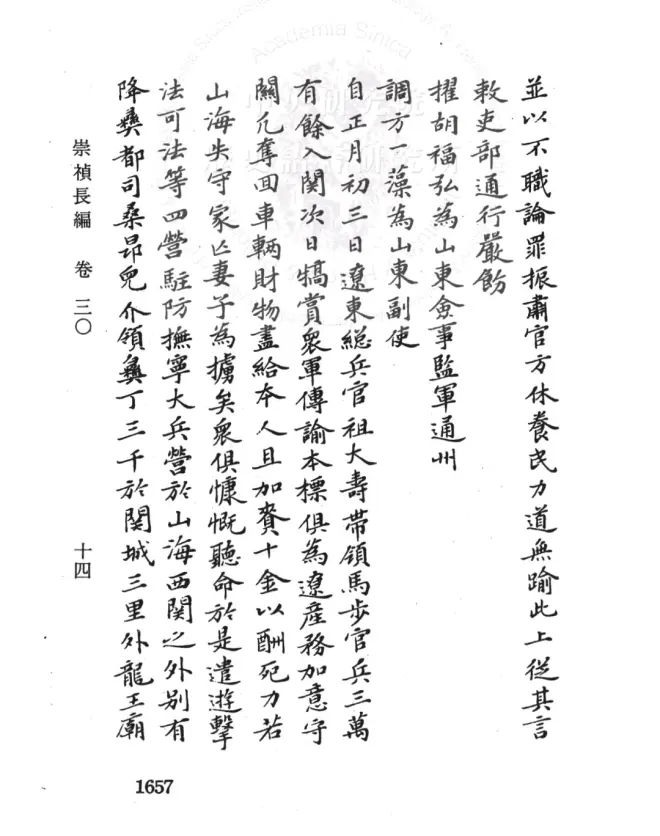 並以不職論罪振肅官方休養民力道無踰此上從其言
敕吏部通行嚴飭
擢胡福弘為山東僉事監軍通州
調方一藻為山東副使
自正月初三日遼東總兵官祖大壽帶領馬步官兵三萬
有餘入関次日犒賞衆軍傳諭本標俱為遼產務加意守
關凢奪回車輛財物盡給本人且加賚十金以酬死力若
山海失守家亡妻子為擄矣衆俱慷慨聽命於是遣遊擊
法可法等四營駐防撫寧大兵營於山海西関之外別有
降彝都司桑昂兒介領彝丁三千於関城三里外龍王廟
崇禎長編 卷三〇 十四
1657
Academia Sinica